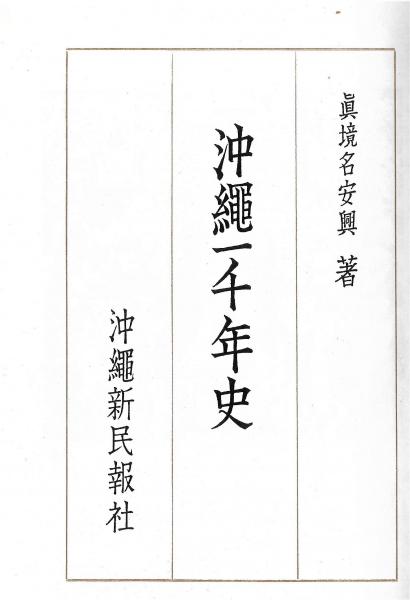 眞境名安興 著
沖繩一千年史
沖繩新民報社